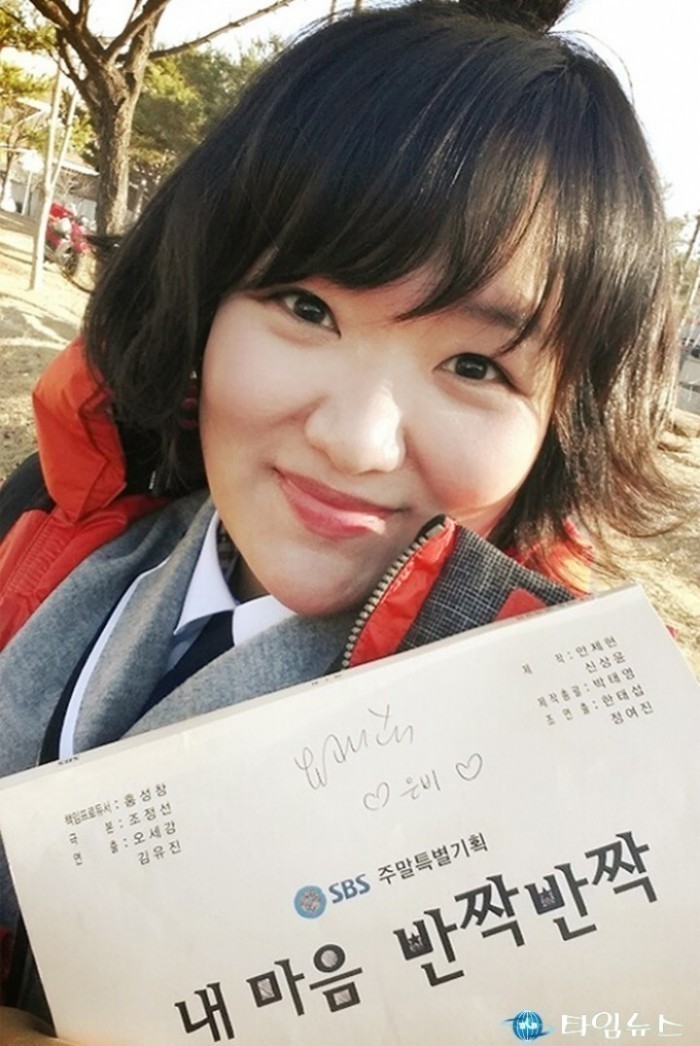 SBS
제 작 : 안제현
신상윤
제작총괄 : 박태영
조 연출 : 한태섭
정여진
♡ 은비 ♡
책임프로듀서 : 홍성창
극 본 : 조정선
연 출 : 오세강
김유진
SBS 주말특별기획
내 마음 반짝반짝
타임뉴스